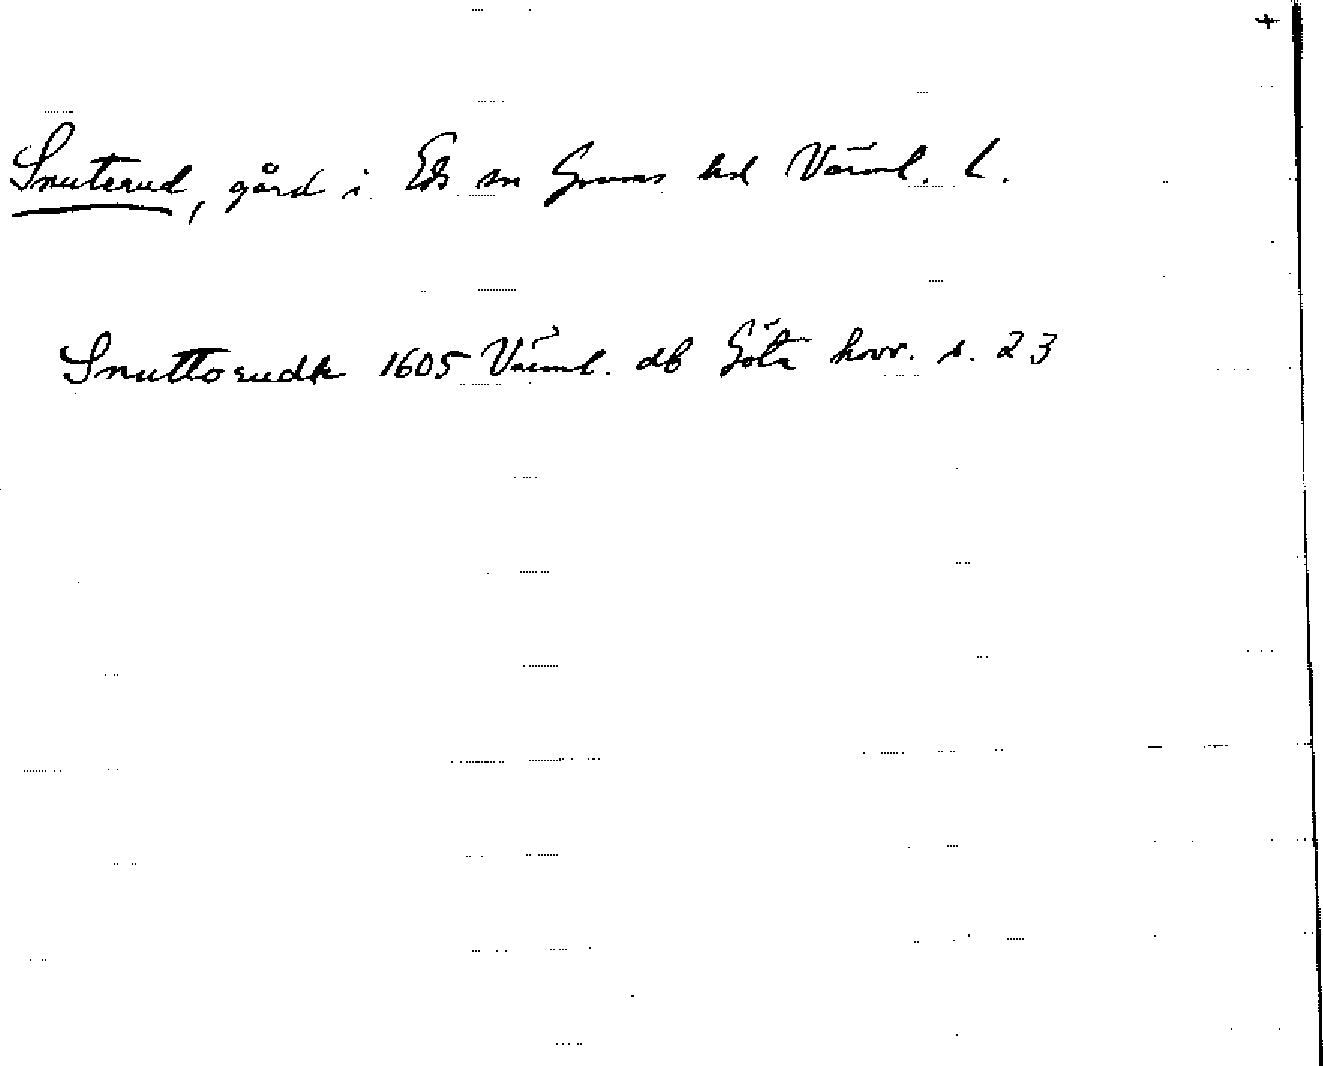 +
Snuterud, gård i Eds sn Grums hd Värml. l.
Snuttorudh 1605 Värml. db Göta hovr. s. 23